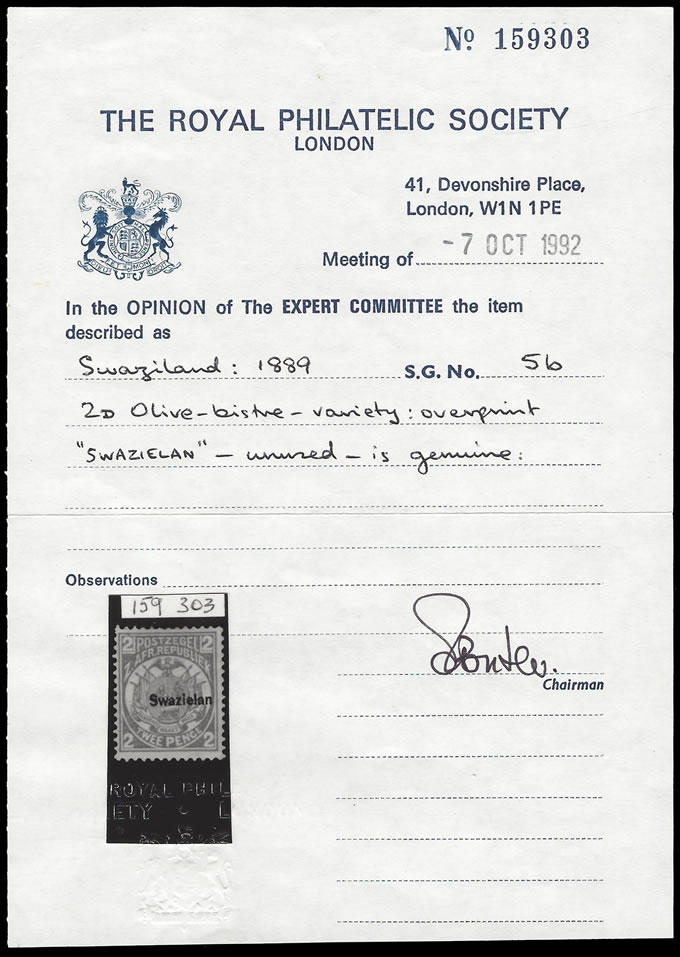 Nº 159303
THE ROYAL PHILATELIC SOCIETY
LONDON
41, Devonshire Place,
London, W1N 1PE
Meeting of -7 OCT 1992
In the OPINION of The EXPERT COMMITTEE the item
described as
Swaziland: 1889 S.G. No. 5b
2D Olive-bistre - variety: overprint
"SWAZIELAN" - unused - is genuine:
Observations
159 303
2 POSTZEGEL 2
Z. AFR. REPUBLIEK
Swazielan
2 TWEE PENCE 2
ROYAL PHIL
ETY L
Chairman